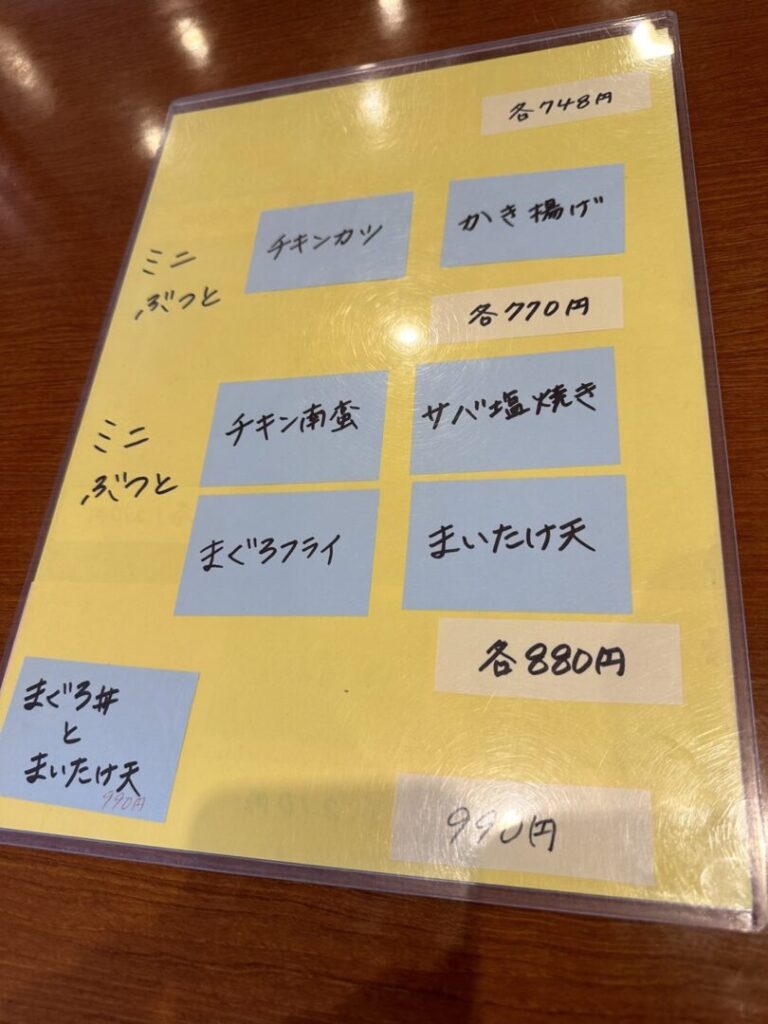 各748円
ミニ
ぶつと
チキンカツ
かき揚げ
各770円
ミニ
ぶつと
チキン南蛮
サバ塩焼き
まぐろフライ
まいたけ天
各880円
まぐろ丼
と
まいたけ天
990円
990円